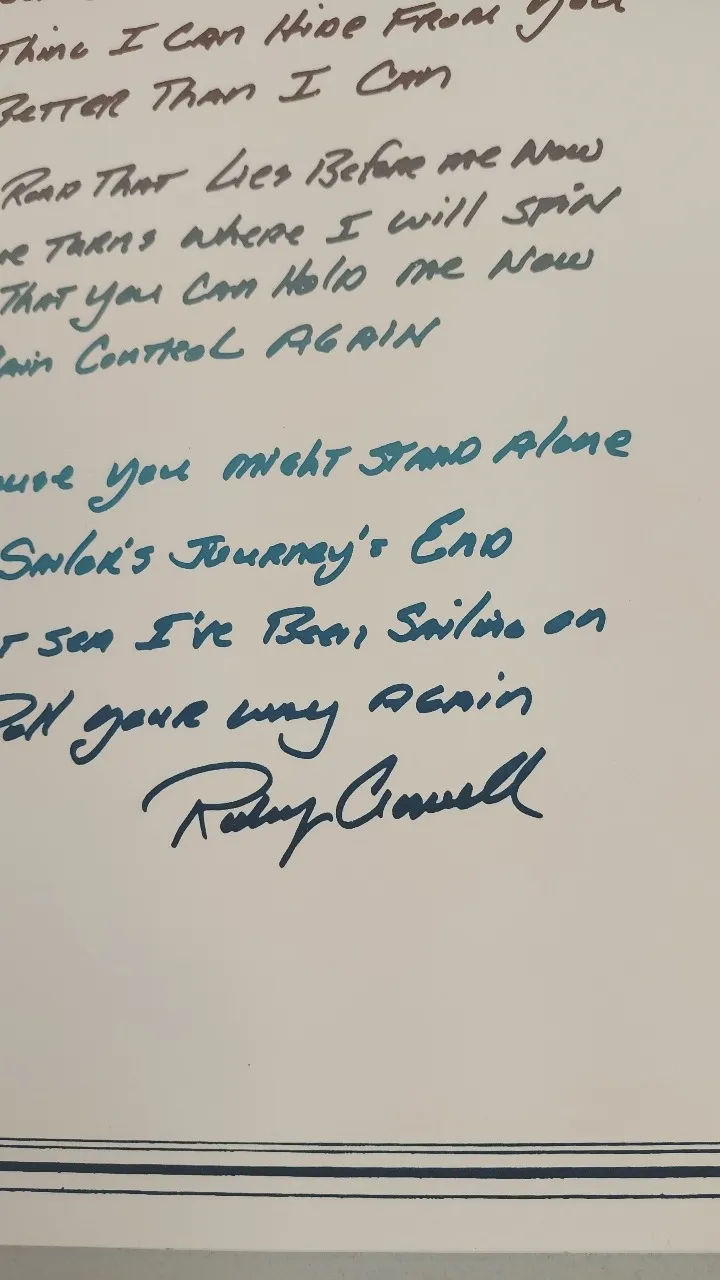 Thing I Can Hide From You
Better Than I Can
Road That Lies Before me Now
Turns where I will SPIN
That you Can Hold me Now
Control AGAIN
you might STAND Alone
Sailor's Journey's End
sea I've Been, Sailing on
your way AGAIN
Rodney Crowell